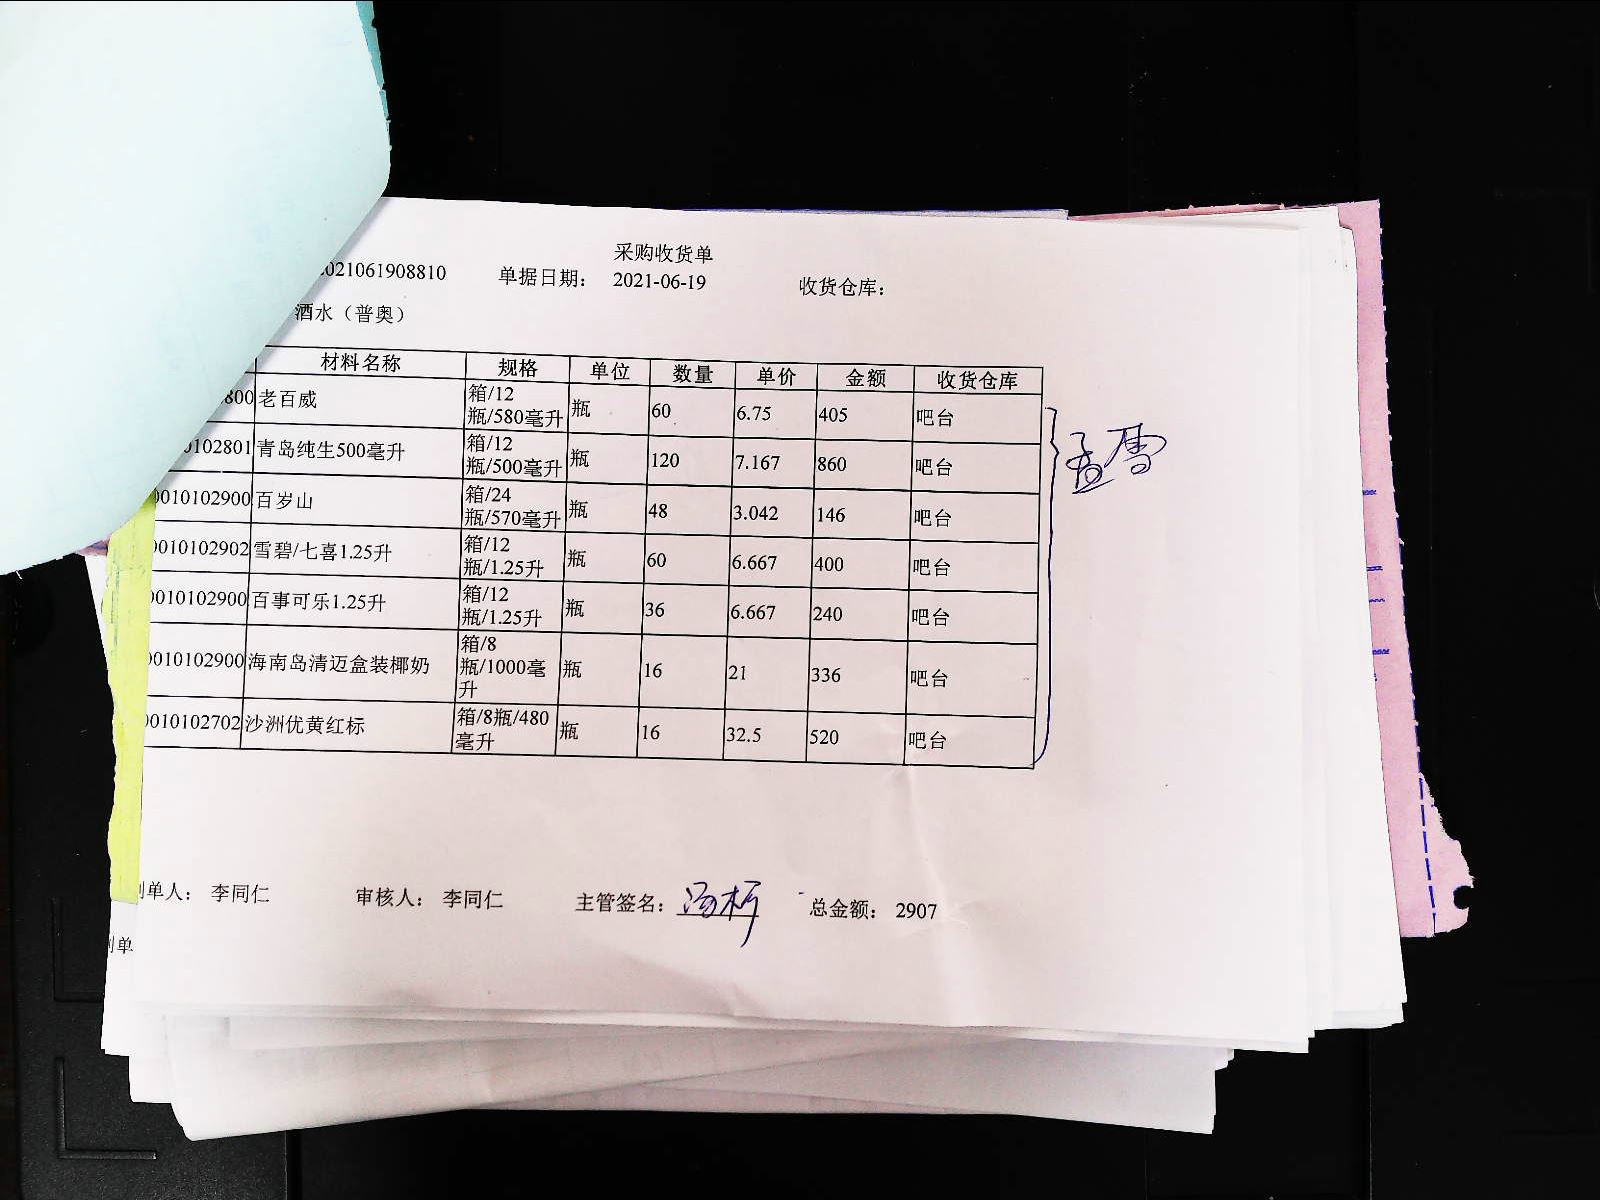 采购收货单
021061908810 单据日期： 2021-06-19 收货仓库：
酒水（普奥）
材料名称 规格 单位 数量 单价 金额 收货仓库
800 老百威 箱/12瓶/580毫升 瓶 60 6.75 405 吧台
0102801 青岛纯生500毫升 箱/12瓶/500毫升 瓶 120 7.167 860 吧台
0010102900 百岁山 箱/24瓶/570毫升 瓶 48 3.042 146 吧台
0010102902 雪碧/七喜1.25升 箱/12瓶/1.25升 瓶 60 6.667 400 吧台
0010102900 百事可乐1.25升 箱/12瓶/1.25升 瓶 36 6.667 240 吧台
0010102900 海南岛清迈盒装椰奶 箱/8瓶/1000毫升 瓶 16 21 336 吧台
0010102702 沙洲优黄红标 箱/8瓶/480毫升 瓶 16 32.5 520 吧台
孟雪
制单人： 李同仁 审核人： 李同仁 主管签名： 总金额： 2907
制单